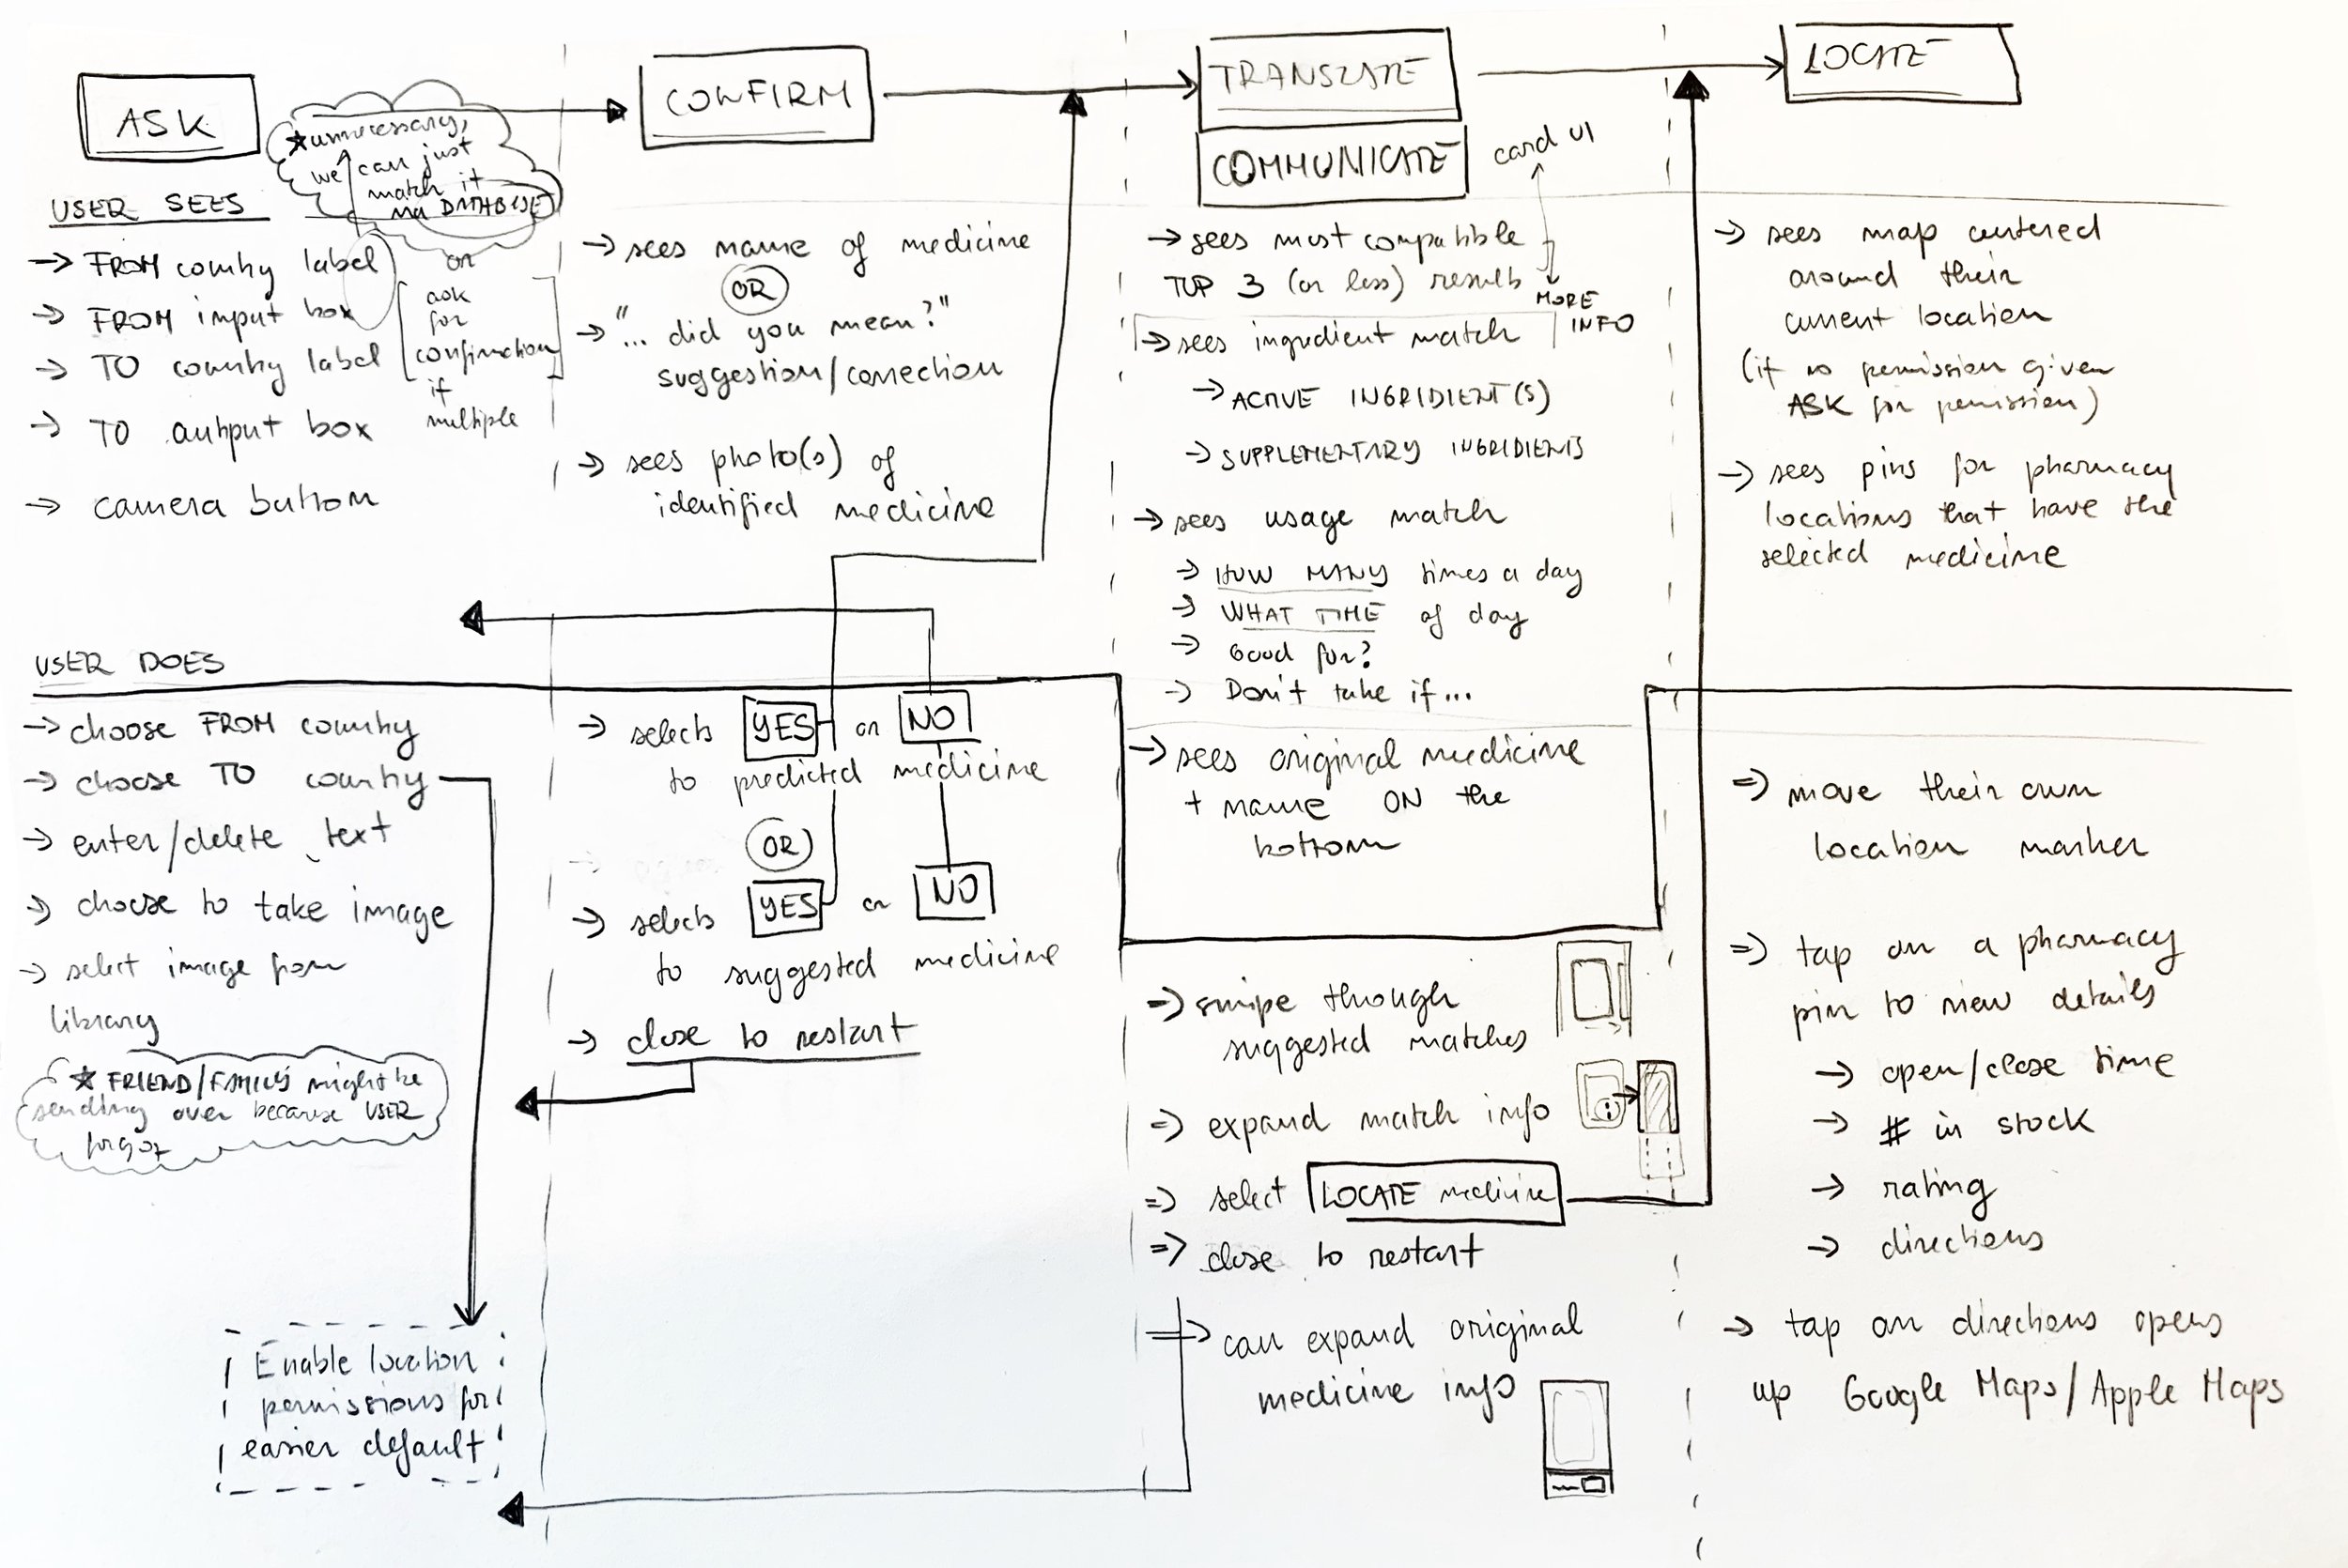 ASK
★ unnecessary,
we can just
match it
via DATABASE
USER SEES
→ FROM country label
→ FROM input box
→ TO country label
→ TO output box
→ camera button
or
ask
for
confirmation
if
multiple
CONFIRM
→ sees name of medicine
OR
→ "... did you mean?"
suggestion/correction
→ sees photo(s) of
identified medicine
TRANSLATE
COMMUNICATE
card UI
→ sees most compatible
TOP 3 (or less) results
MORE
INFO
→ sees ingredient match
→ ACTIVE INGRIDIENT(S)
→ SUPPLEMENTARY INGRIDIENTS
→ sees usage match
→ HOW MANY times a day
→ WHAT TIME of day
→ Good for?
→ Don't take if...
→ sees original medicine
+ name ON the
bottom
LOCATE
→ sees map centered
around their
current location
(if no permission given
ASK for permission)
→ sees pins for pharmacy
locations that have the
selected medicine
USER DOES
→ choose FROM country
→ choose TO country
→ enter/delete text
→ choose to take image
→ select image from
library
★ FRIEND/FAMILY might be
sending over because USER
forgot
Enable location
permissions for
easier default
→ selects YES or NO
to predicted medicine
OR
→ selects YES or NO
to suggested medicine
→ close to restart
⇒ swipe through
suggested matches
⇒ expand match info
⇒ select LOCATE medicine
⇒ close to restart
⇒ can expand original
medicine info
⇒ move their own
location marker
⇒ tap on a pharmacy
pin to view details
→ open/close time
→ # in stock
→ rating
→ directions
→ tap on directions opens
up Google Maps/Apple Maps